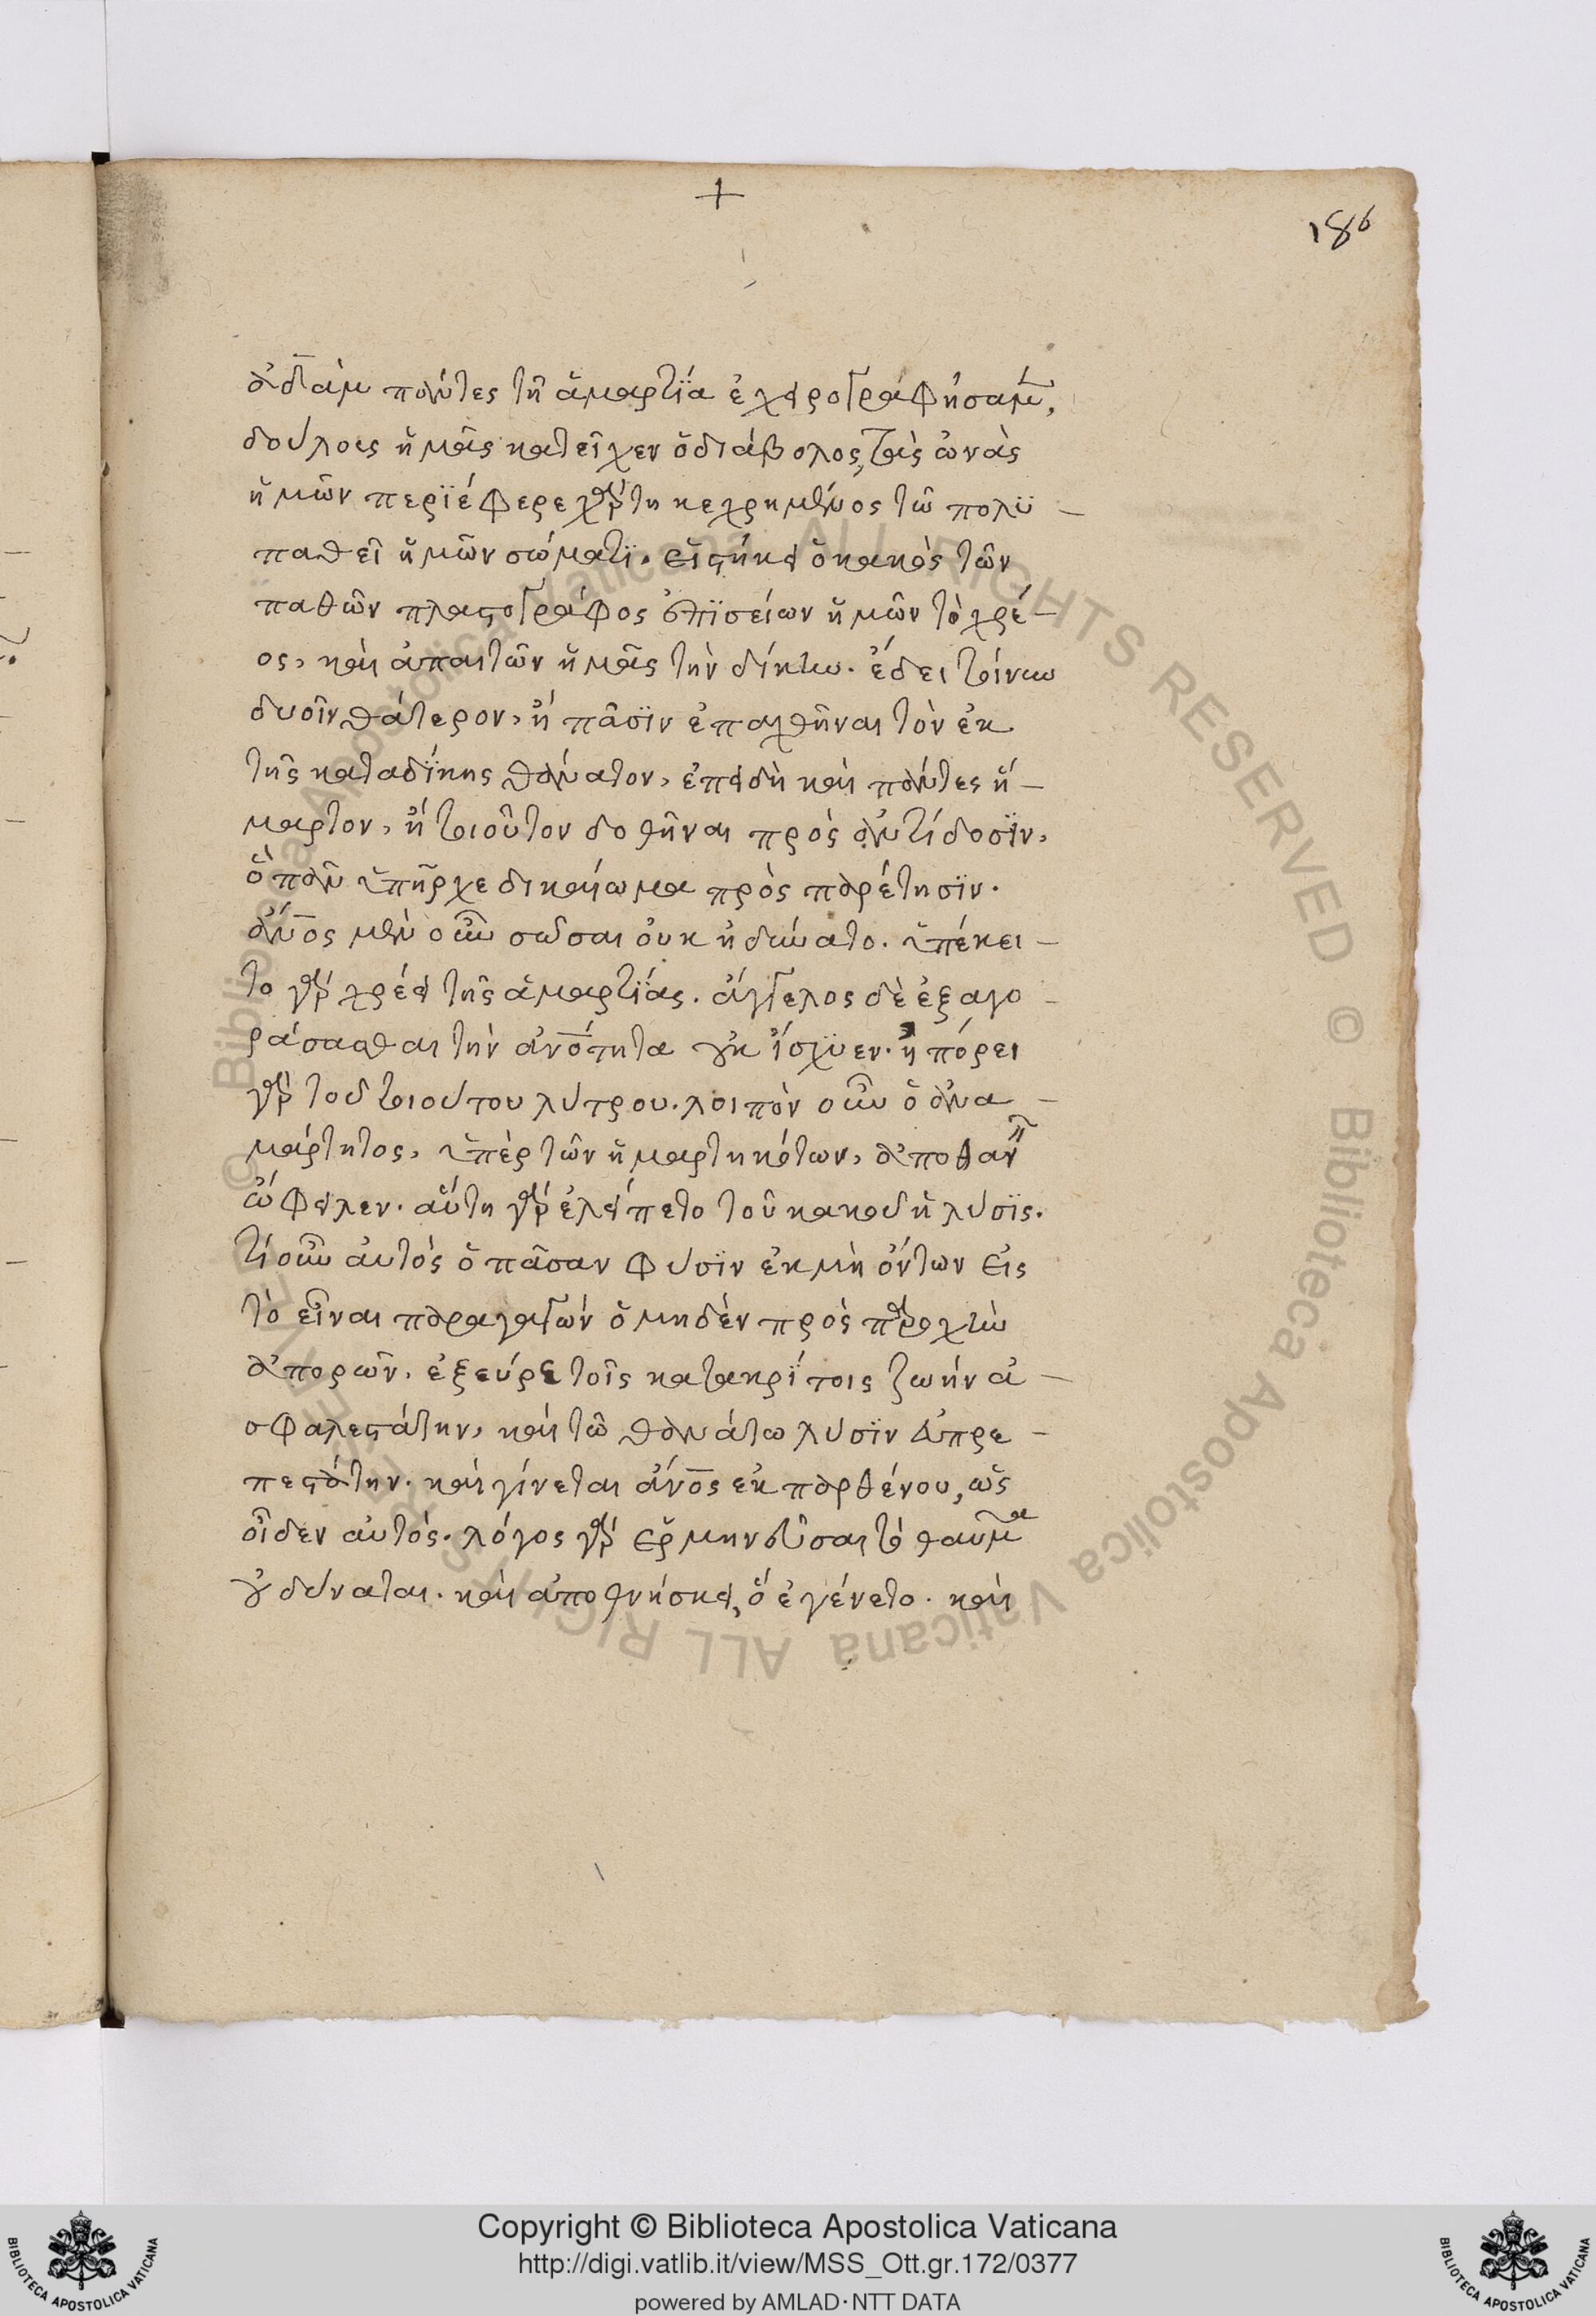 +
186
ἀδὰμ πάντες τῆ ἁμαρτΐα ἐχειρογραφήσαμ̅,
δούλους ἡμᾶς κατεῖχεν ὁ διάβολος, τὰς ὠνὰς
ἡμῶν περϊέφερε χάρτη κεχρημένος τῶ πολϋ –
παθεῖ ἡμῶν σώματϊ. εἱστήκει ὁ κακὸς τῶν
παθῶν πλαστογράφος ἐπϊσείων ἡμῶν τὸ χρέ –
ος, καὶ ἀπαιτῶν ἡμᾶς τὴν δίκην. ἔδει τοίνυν
δυοῖν θάτερον, ἢ πᾶσϊν ἐπαχθῆναι τὸν ἐκ
τῆς καταδΐκης θάνατον, ἐπειδὴ καὶ πάντες ἥ –
μαρτον, ἢ τοιοῦτον δοθῆναι πρὸς ἀντίδοσϊν,
ὃ πᾶν ὑπῆρχε δικαίωμα πρὸς παρέτησϊν.
ἄν̅ος μὲν οὖν σῶσαι οὐκ ἠδύνατο. ὑπέκει –
το γὰρ χρέει τῆς ἁμαρτΐας. ἄγγελος δὲ ἐξαγο –
ράσασθαι τὴν ἀν̅ότητα οὐκ ἴσχϋεν. ἠπόρει
γὰρ τοῦ τοιούτου λύτρου. λοιπὸν οὖν ὁ ἀνα –
μάρτητος, ὑπὲρ τῶν ἡμαρτηκότων, ἀποθαν
ὤφειλεν. αὕτη γὰρ ἐλείπετο τοῦ κακοῦ ἡ λύσϊς.
τί οὖν αὐτὸς ὁ πᾶσαν φύσϊν ἐκ μὴ ὄντων εἰς
τὸ εἶναι παραγαγών ὁ μηδὲν πρὸς παροχὴν
ἀπορῶν. ἐξεύρε τοῖς κατακρΐτοις ζωήν ἀ –
σφαλεστάτην, καὶ τῶ θανάτω λύσϊν εὐπρε –
πεστάτην. καὶ γίνεται ἄν̅ος ἐκ παρθένου, ὡς
οἶδεν αὐτὸς. λόγος γὰρ ἑρμηνεῦσαι τὸ θαῦμα
οὐ δύναται. καὶ ἀποθνήσκει, ὃ ἐγένετο. καὶ
Copyright © Biblioteca Apostolica Vaticana
http://digi.vatlib.it/view/MSS_Ott.gr.172/0377
powered by AMLAD·NTT DATA
BIBLIOTECA APOSTOLICA VATICANA
BIBLIOTECA APOSTOLICA VATICANA
© Biblioteca Apostolica Vaticana ALL RIGHTS RESERVED
© Biblioteca Apostolica Vaticana ALL RIGHTS RESERVED